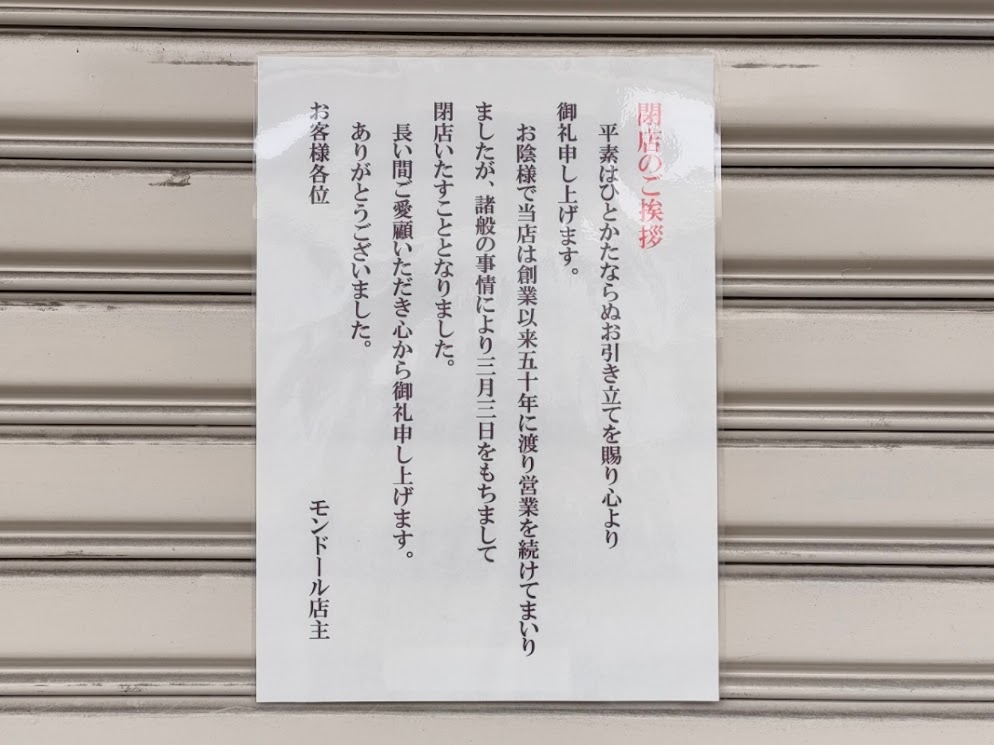 閉店のご挨拶
平素はひとかたならぬお引き立てを賜り心より
御礼申し上げます。
お陰様で当店は創業以来五十年に渡り営業を続けてまいり
ましたが、諸般の事情により三月三日をもちまして
閉店いたすこととなりました。
長い間ご愛顧いただき心から御礼申し上げます。
ありがとうございました。
お客様各位
モンドール店主